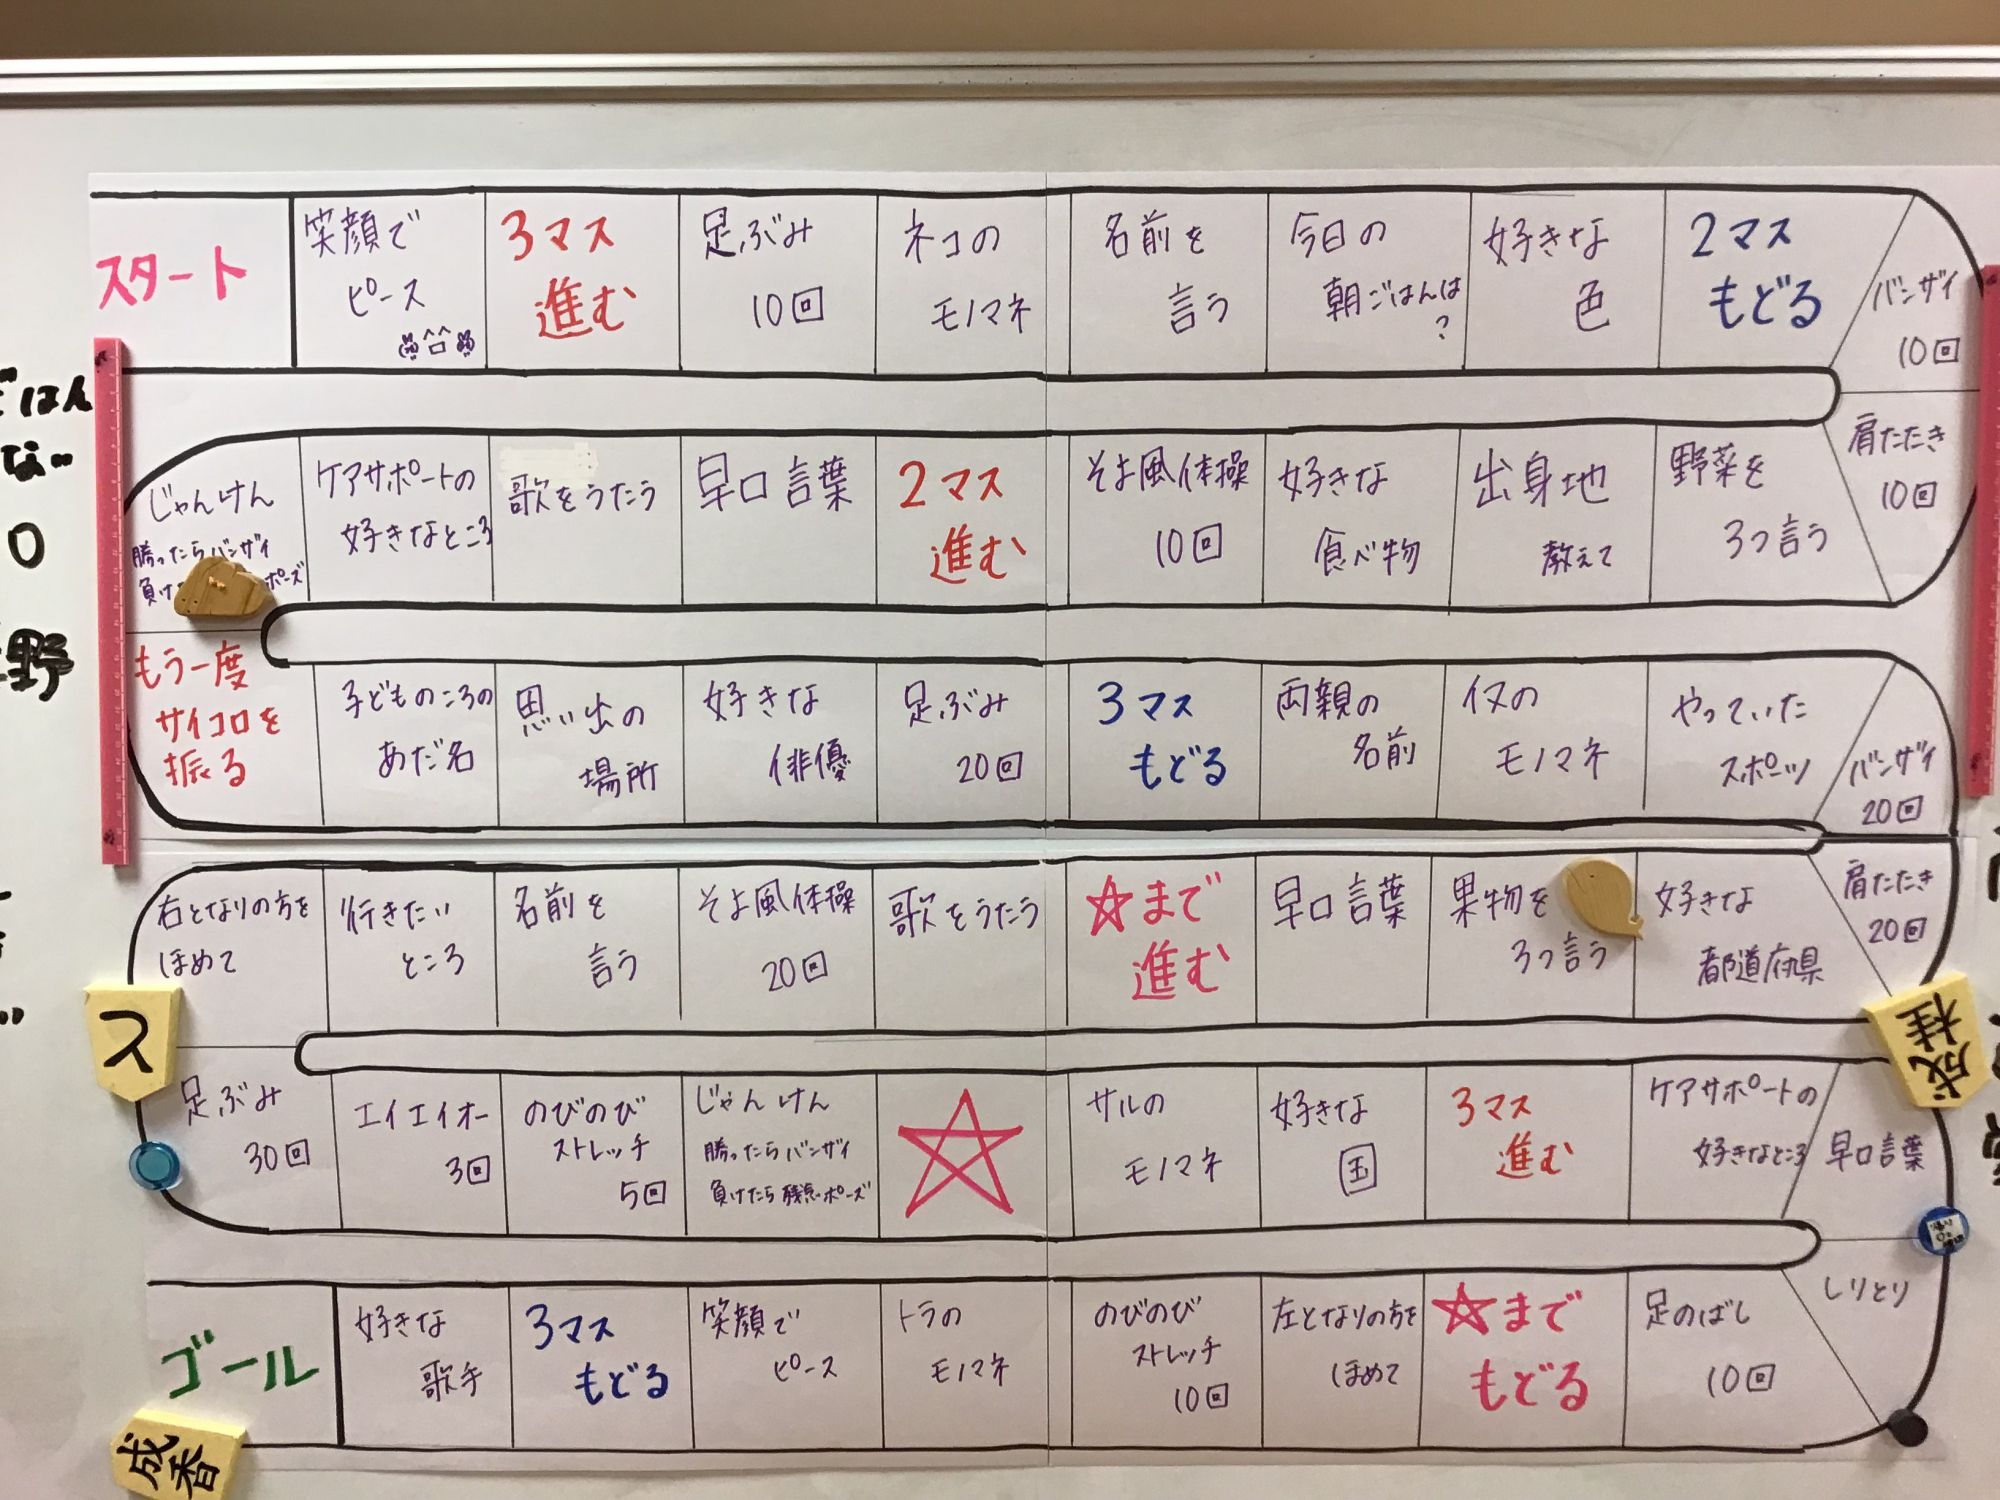 スタート
笑顔で
ピース
3マス
進む
足ぶみ
10回
ネコの
モノマネ
名前を
言う
今日の
朝ごはんは
?
好きな
色
2マス
もどる
バンザイ
10回
肩たたき
10回
野菜を
3つ言う
出身地
教えて
好きな
食べ物
そよ風体操
10回
2マス
進む
早口言葉
歌をうたう
ケアサポートの
好きなところ
じゃんけん
勝ったらバンザイ
負け
ポーズ
もう一度
サイコロを
振る
子どものころの
あだ名
思い出の
場所
好きな
俳優
足ぶみ
20回
3マス
もどる
両親の
名前
イヌの
モノマネ
やっていた
スポーツ
バンザイ
20回
肩たたき
20回
好きな
都道府県
果物を
3つ言う
早口言葉
☆まで
進む
歌をうたう
そよ風体操
20回
名前を
言う
行きたい
ところ
右となりの方を
ほめて
足ぶみ
30回
エイエイオー
3回
のびのび
ストレッチ
5回
じゃんけん
勝ったらバンザイ
負けたら残念ポーズ
サルの
モノマネ
好きな
国
3マス
進む
ケアサポートの
好きなところ
早口言葉
しりとり
足のばし
10回
☆まで
もどる
左となりの方を
ほめて
のびのび
ストレッチ
10回
トラの
モノマネ
笑顔で
ピース
3マス
もどる
好きな
歌手
ゴール
ごはん
な
野
ス
成桂
成香